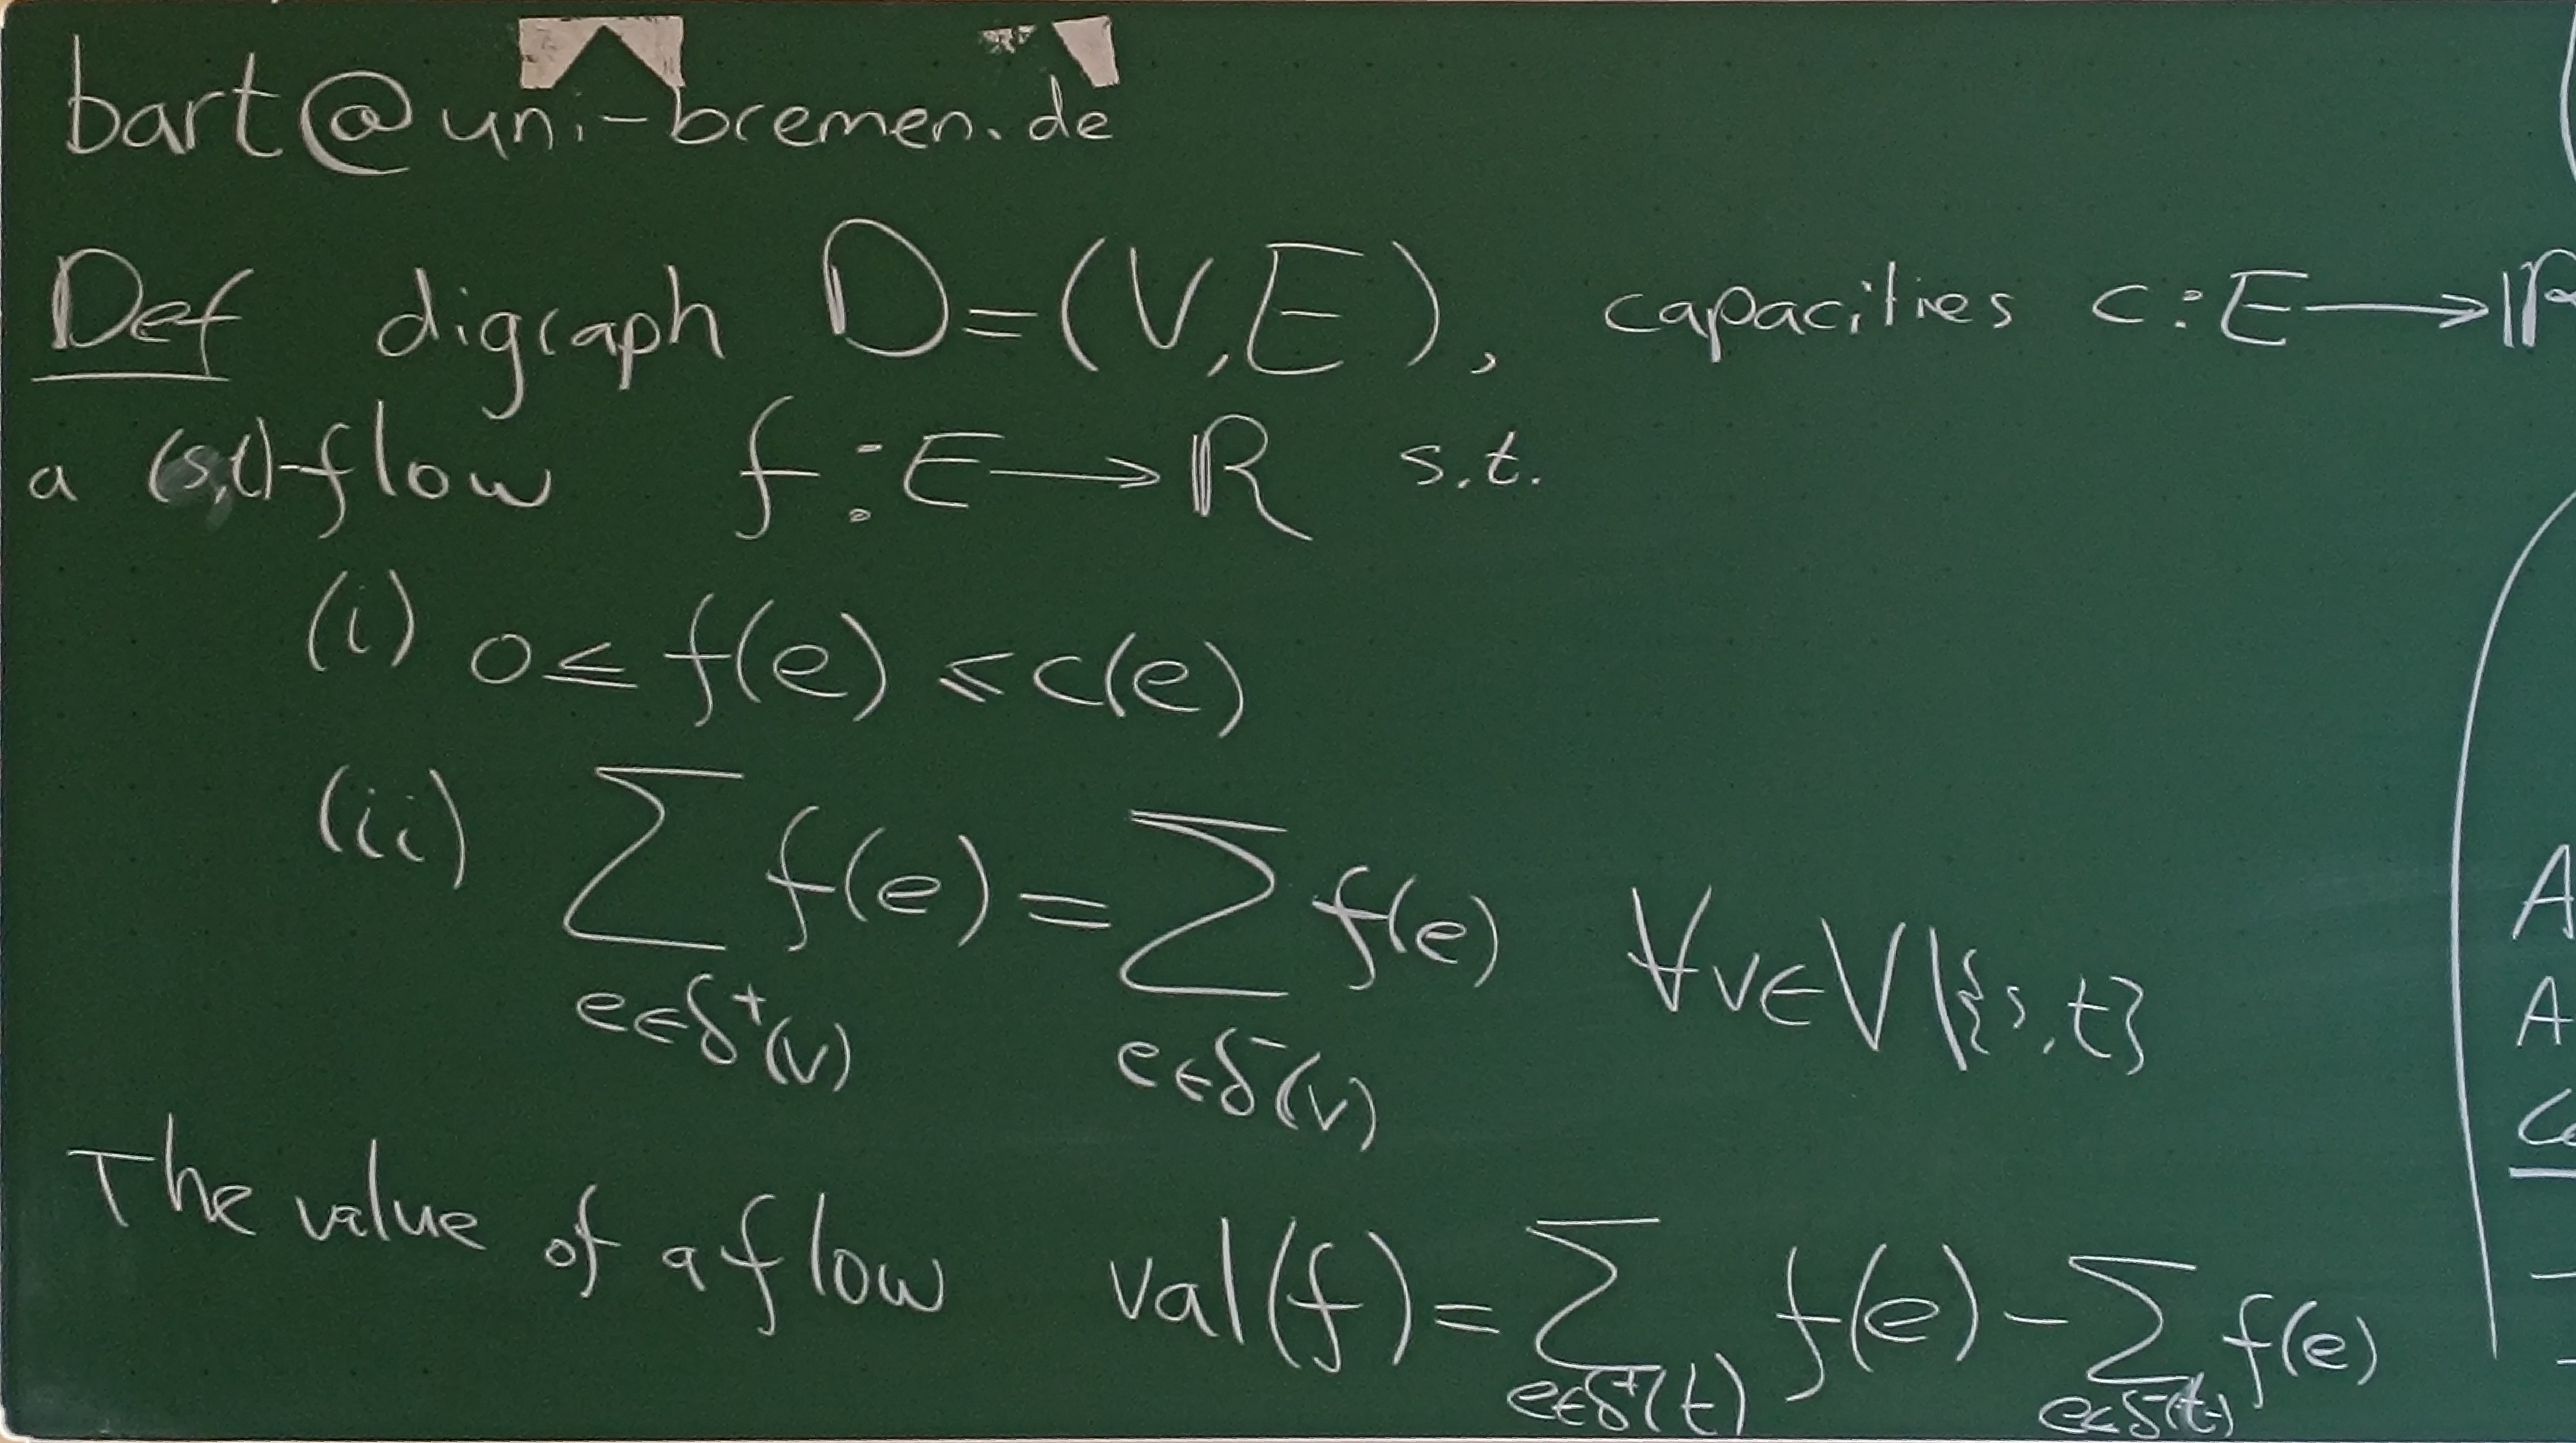 bart@uni-bremen.de
Def digraph D=(V,E), capacities c:E→ℝ
a (s,t)-flow f:E→ℝ s.t.
(i) 0≤f(e)≤c(e)
(ii) ∑_{e∈δ⁺(v)} f(e)=∑_{e∈δ⁻(v)} f(e) ∀v∈V\{s,t}
The value of a flow val(f)=∑_{e∈δ⁺(t)} f(e)-∑_{e∈δ⁻(t)} f(e)